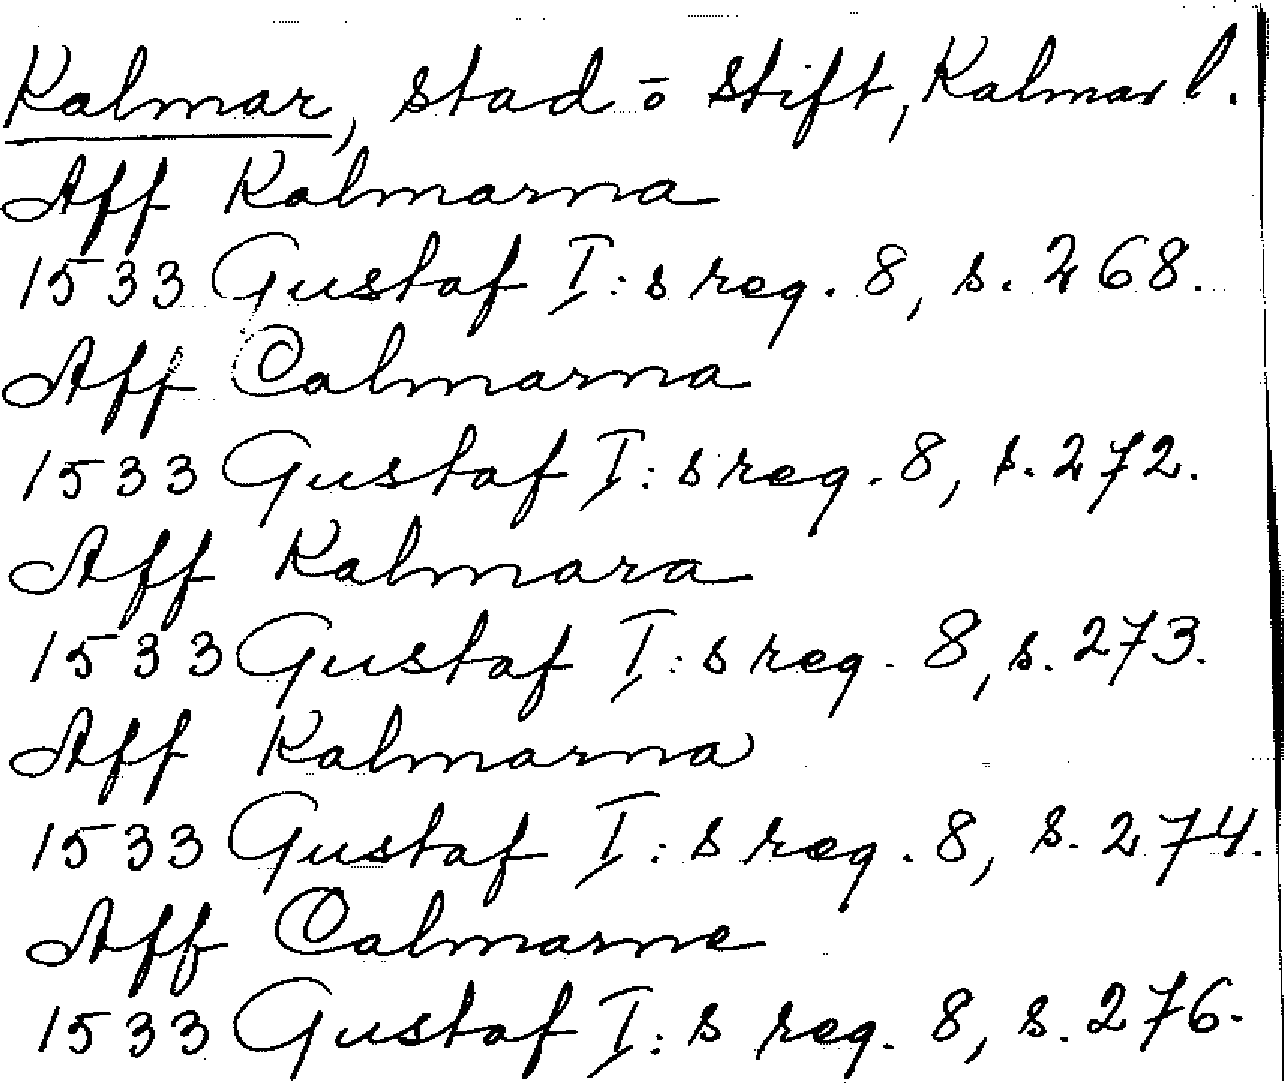 Kalmar, stad o stift, Kalmar l.
Aff Kalmarna
1533 Gustaf I:s reg. 8, s. 268.
Aff Calmarna
1533 Gustaf I:s reg. 8, s. 272.
Aff Kalmara
1533 Gustaf I:s reg. 8, s. 273.
Aff Kalmarna
1533 Gustaf I:s reg. 8, s. 274.
Aff Calmarne
1533 Gustaf I:s reg. 8, s. 276.